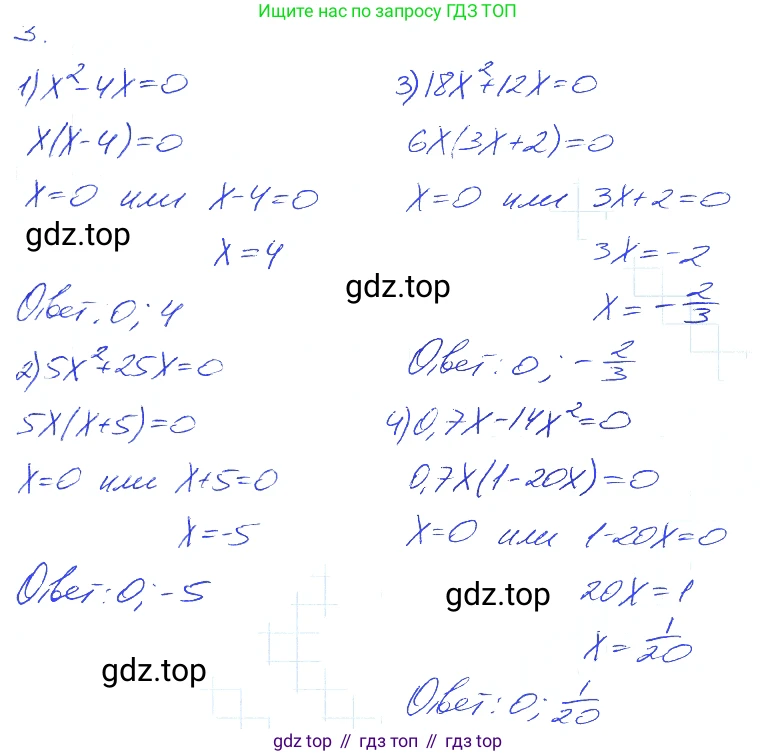 Ищите нас по запросу ГДЗ ТОП
3.
1) x²-4x=0
x(x-4)=0
x=0 или x-4=0
gdz.top
x=4
Ответ: 0; 4
2) 5x²+25x=0
5x(x+5)=0
x=0 или x+5=0
x=-5
Ответ: 0; -5
gdz.top
3) 18x²+12x=0
6x(3x+2)=0
x=0 или 3x+2=0
3x=-2
gdz.top
x=-2/3
Ответ: 0; -2/3
4) 0,7x-14x²=0
0,7x(1-20x)=0
x=0 или 1-20x=0
gdz.top
20x=1
x=1/20
Ответ: 0; 1/20
gdz топ // гдз топ // gdz top